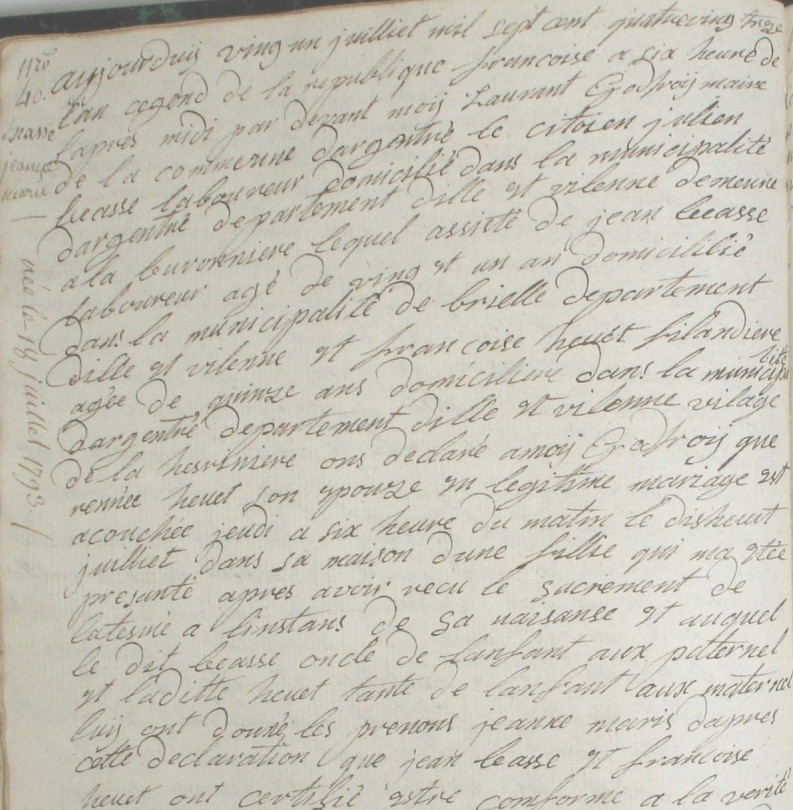 nro
40.
beasse
jeanne
marie
née le 18 juillet 1793
aujourduij vingt un juilliet mil sept cent quatreving treze
lan cegond de la republique francoise a six heure de
lapres midi par devant moij Laurant Godfroij maire
de la commeune dargentré le citoien julien
beasse laboureur domicilié dans la municipalité
dargentré departement dille et vilenne demeure
a la beuronniere lequel assisté de jean beasse
laboureur agé de ving et un an domicililié
dans la municipalité de brielle departement
dille et vilenne et francoise heuet filandiere
agée de quinze ans domiciliere dans la municipalité
dargentré departement dille et vilenne vilage
de la ont declaré a moij Godfroij que
rennée heuet son epouze en legitime mariage est
acouchée jeudi a six heure du matin le disheuit
juilliet dans sa maison dune fillie qui ma etée
presanté apres avoir recu le sacrement de
batesme a linstans de sa naisanse et auquel
le dit beasse oncle de lanfant aux paternel
et laditte heuet tante de lanfant aux maternel
luij ont donné les prenons jeanne marie dapres
cette declaration que jean beasse et francoise
heuet ont certifié estre comforme a la verité